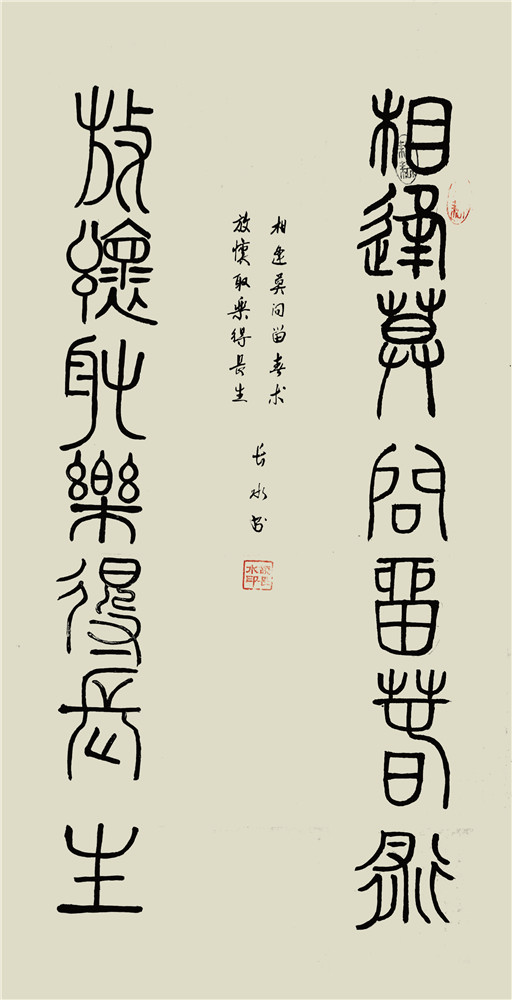 相逢莫问留春术
放怀取乐得长生
相逢莫问留春术
放怀取樂得長生
长水书